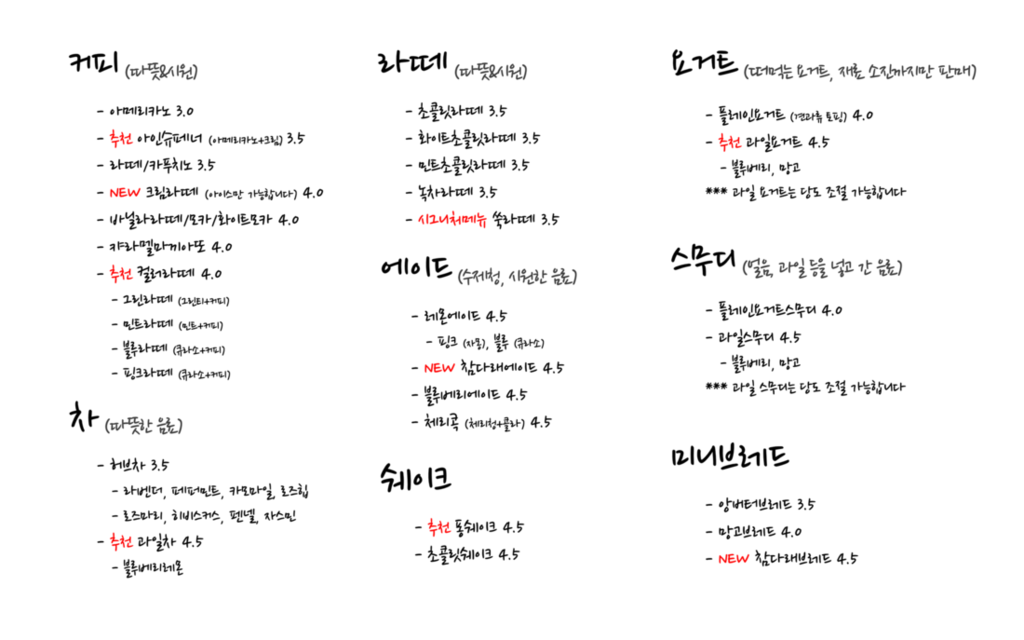 커피 (따뜻&시원)
- 아메리카노 3.0
- 추천 아인슈페너 (아메리카노+크림) 3.5
- 라떼/카푸치노 3.5
- NEW 크림라떼 (아이스만 가능합니다) 4.0
- 바닐라라떼/모카/화이트모카 4.0
- 캬라멜마끼아또 4.0
- 추천 컬러라떼 4.0
- 그린라떼 (그린티+커피)
- 민트라떼 (민트+커피)
- 블루라떼 (큐라소+커피)
- 핑크라떼 (큐라소+커피)
차 (따뜻한 음료)
- 허브차 3.5
- 라벤더, 페퍼민트, 카모마일, 로즈힙
- 로즈마리, 히비스커스, 펜넬, 자스민
- 추천 과일차 4.5
- 블루베리레몬
라떼 (따뜻&시원)
- 초콜릿라떼 3.5
- 화이트초콜릿라떼 3.5
- 민트초콜릿라떼 3.5
- 녹차라떼 3.5
- 시그니처메뉴 쑥라떼 3.5
에이드 (수제청, 시원한 음료)
- 레몬에이드 4.5
- 핑크 (자몽), 블루 (큐라소)
- NEW 참다래에이드 4.5
- 블루베리에이드 4.5
- 체리콕 (체리청+콜라) 4.5
쉐이크
- 추천 퐁쉐이크 4.5
- 초콜릿쉐이크 4.5
요거트 (떠먹는 요거트, 재료 소진까지만 판매)
- 플레인요거트 (견과류 토핑) 4.0
- 추천 과일요거트 4.5
- 블루베리, 망고
*** 과일 요거트는 당도 조절 가능합니다
스무디 (얼음, 과일 등을 넣고 간 음료)
- 플레인요거트스무디 4.0
- 과일스무디 4.5
- 블루베리, 망고
*** 과일 스무디는 당도 조절 가능합니다
미니브레드
- 앙버터브레드 3.5
- 망고브레드 4.0
- NEW 참다래브레드 4.5